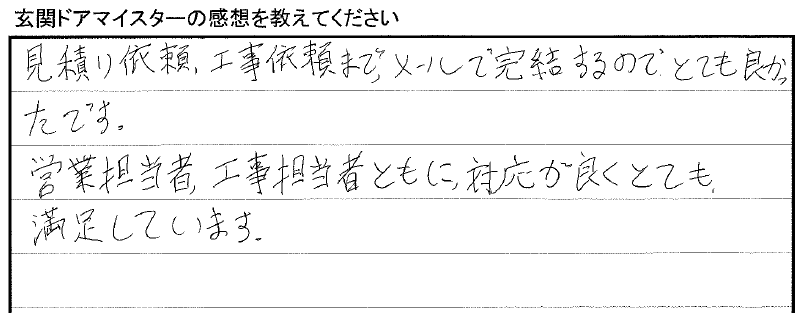 玄関ドアマイスターの感想を教えてください
見積り依頼、工事依頼まで、メールで完結するので、とても良かっ
たです。
営業担当者、工事担当者ともに、対応が良くとても、
満足しています。